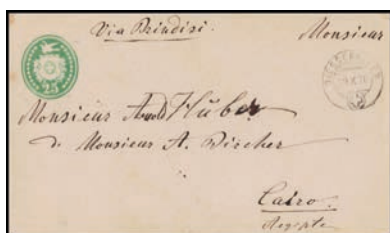 Via Brindisi.
Monsieur
25
Monsieur Arnold Huber
A. Monsieur A. Bircher
Cairo
Aegypte